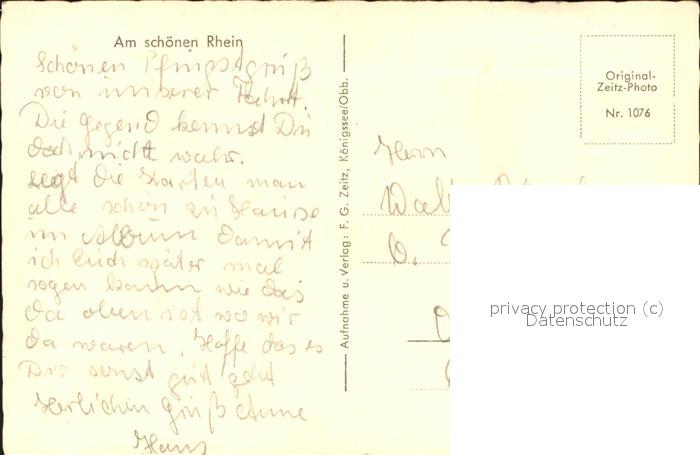 Am schönen Rhein
Schönen Pfingstgruß
von unserer Fahrt.
Die gegend kennst Du
doch, nicht wahr.
legt die Karten man
alle schön zu Hause
im Album damit
ich Euch später mal
sagen kann wie das
da oben ist wo wir
da waren. Hoffe das es
Dir sonst gut geht
Herlichen Gruß
Hans
Aufnahme u. Verlag: F. G. Zeitz, Königssee/Obb.
Original-
Zeitz-Photo
Nr. 1076
Herrn
privacy protection (c)
Datenschutz